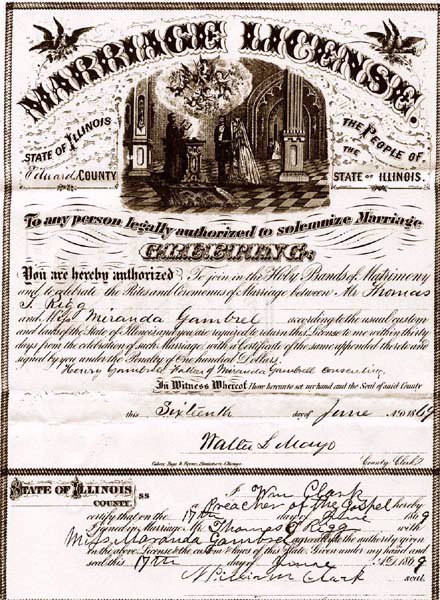 MARRIAGE LICENSE.
STATE OF ILLINOIS
Edward COUNTY
THE PEOPLE OF
THE
STATE OF ILLINOIS.
To any person legally authorized to solemnize Marriage
GREETING;
You are hereby authorized To join in the Holy Bands of Matrimony
and to celebrate the Rites and Ceremonies of Marriage between Mr Thomas
J Rigg
and Miss Miranda Gambrel according to the usual custom
and laws of the State of Illinois and you are required to return this License to me within thirty
days from the celebration of such Marriage, with a Certificate of the same appended thereto and
signed by you under the Penalty of One hundred Dollars.
Henry Gambrel Father of Miranda Gambrell Consenting.
In Witness Whereof I have hereunto set my hand and the Seal of said County
this Sixteenth day of June AD 1869
Walter L Mayo
County Clerk
STATE OF ILLINOIS
COUNTY. SS
I Wm Clark
a Preacher of the Gospel hereby
certify that on the 17th day of June 1869
I joined in Marriage Mr Thomas J Rigg with
Miss Maranda Gambrel agreeably to the authority given
in the above License & the customs & laws of this State. Given under my hand and
seal this 17th day of June AD 1869
William Clark seal